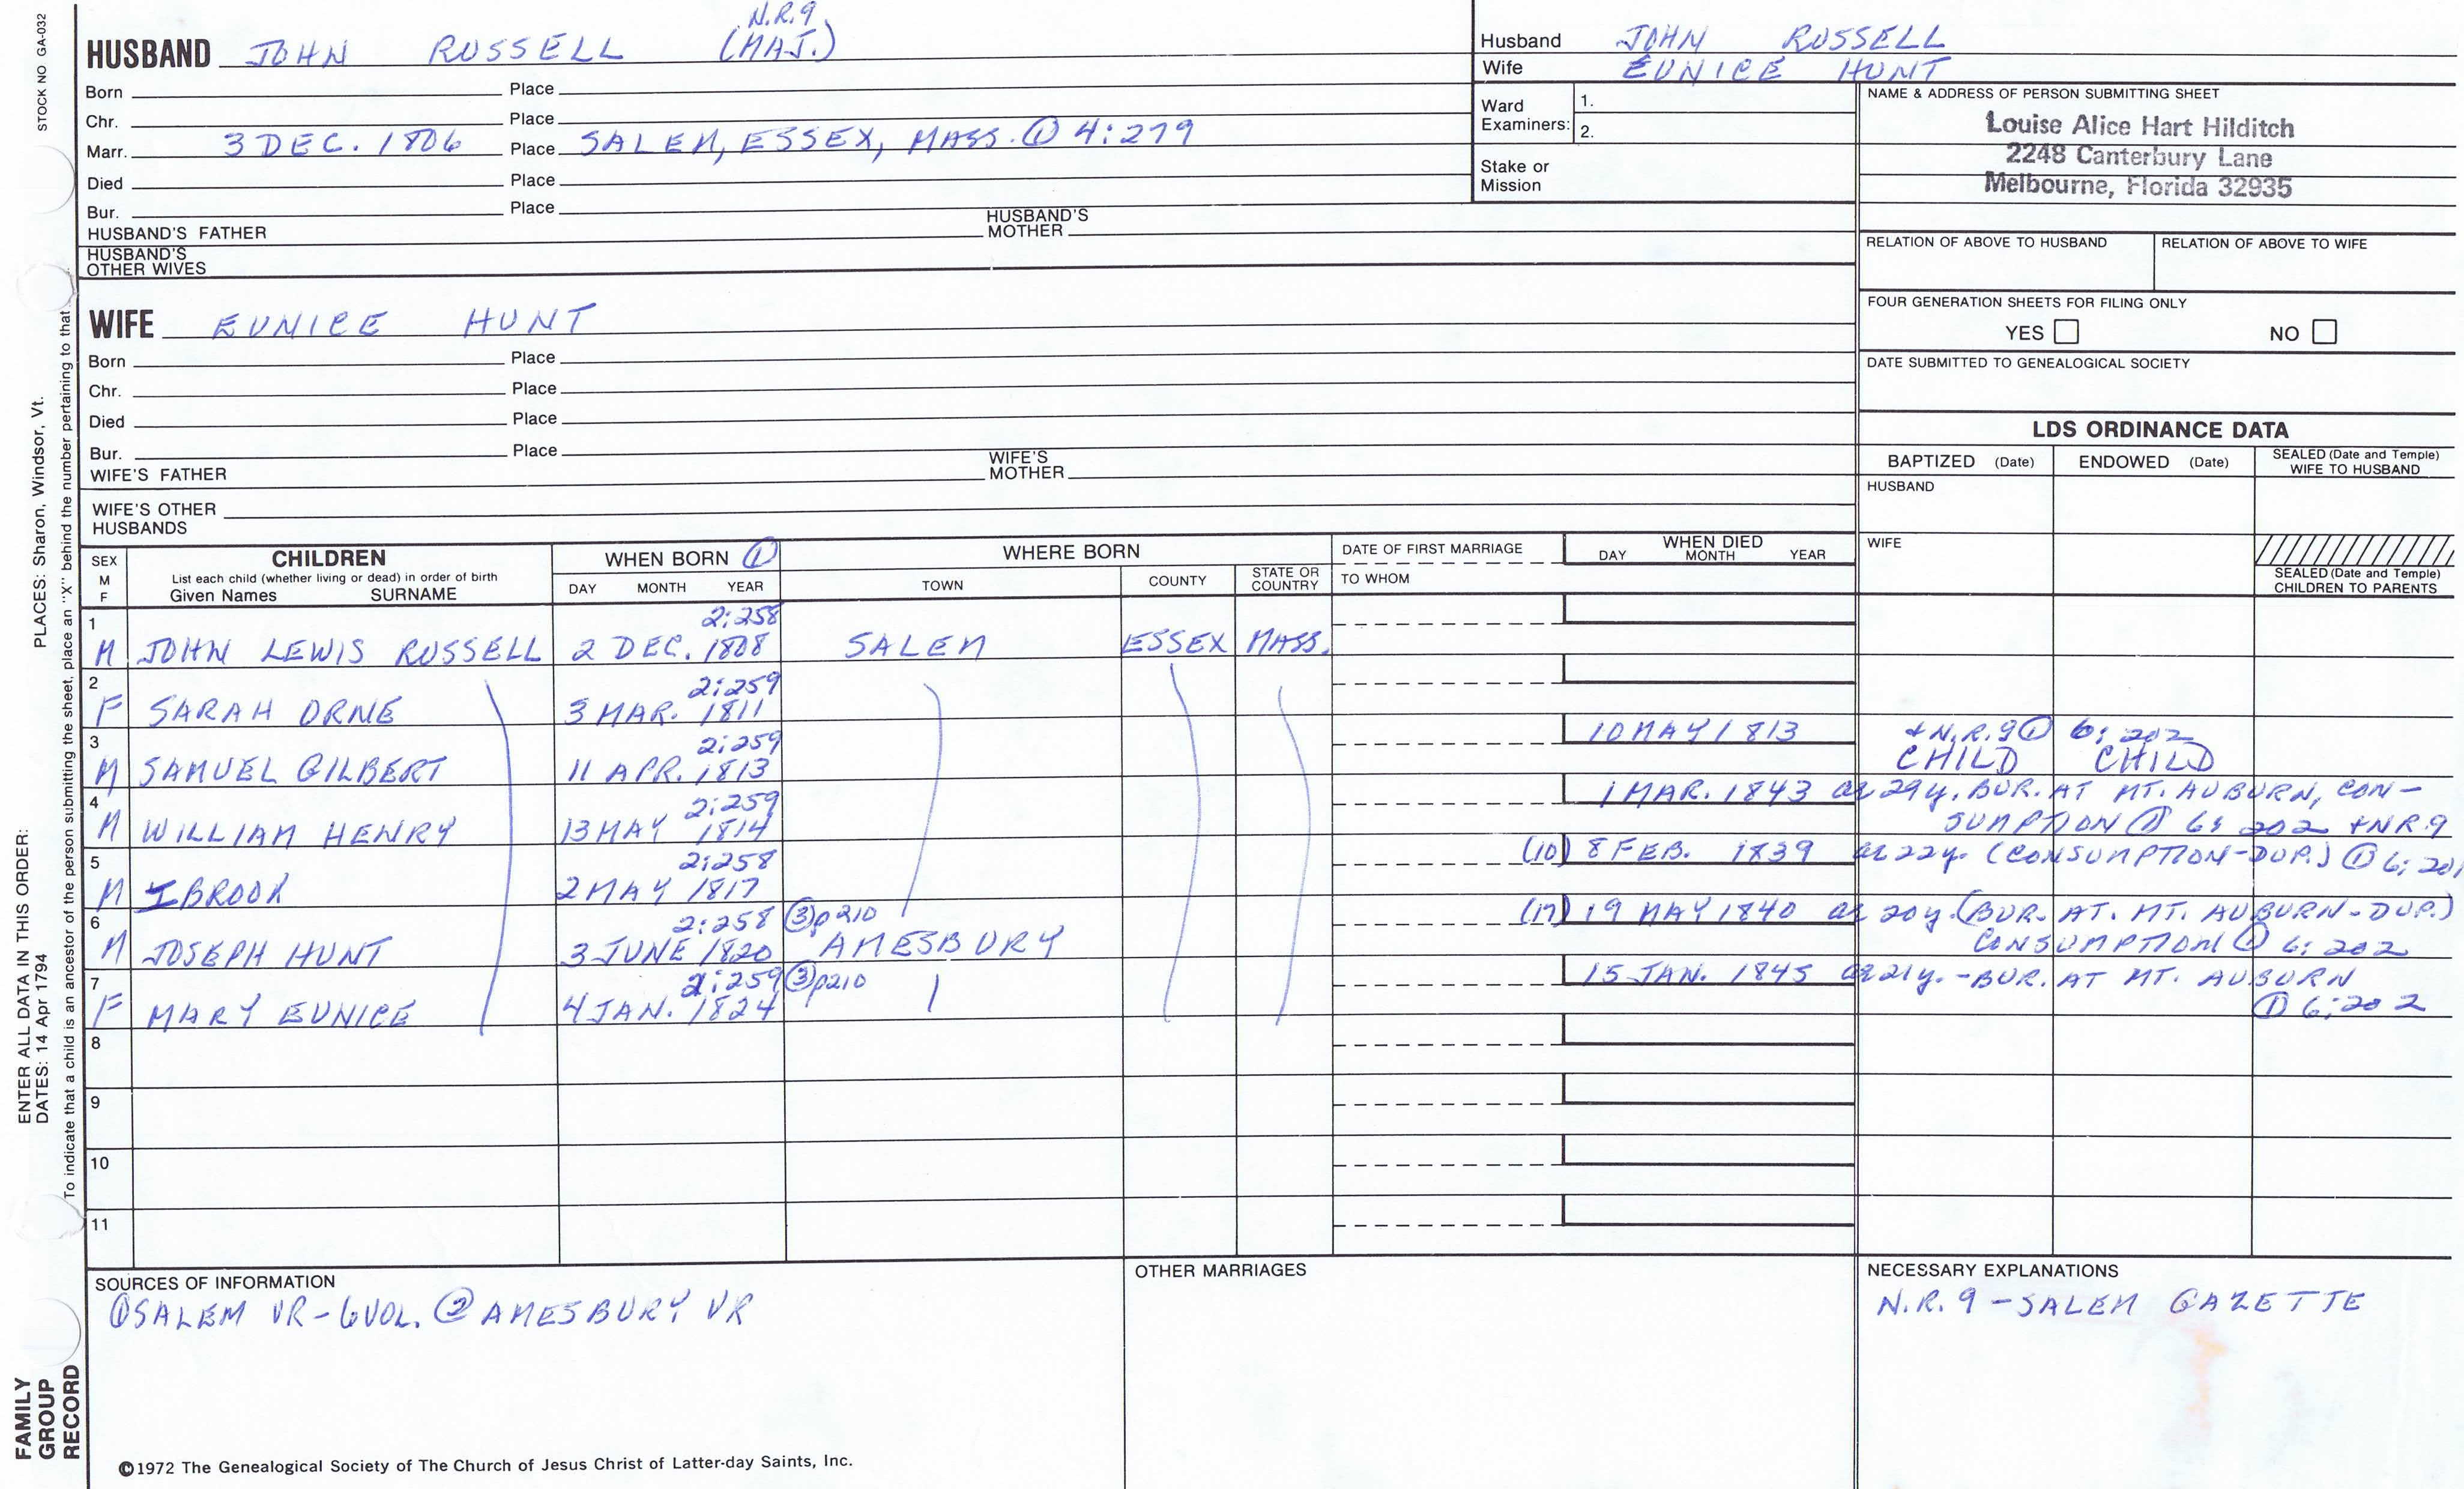 STOCK NO GA-032
HUSBAND JOHN RUSSELL (MAJ.) N.R.9
Born Place
Chr. Place
Marr. 3 DEC. 1806 Place SALEM, ESSEX, MASS. ① 4:279
Died Place
Bur. Place
HUSBAND'S FATHER HUSBAND'S MOTHER
HUSBAND'S OTHER WIVES
WIFE EUNICE HUNT
Born Place
Chr. Place
Died Place
Bur. Place
WIFE'S FATHER WIFE'S MOTHER
WIFE'S OTHER HUSBANDS
Husband JOHN RUSSELL
Wife EUNICE HUNT
Ward Examiners: 1.
2.
Stake or Mission
NAME & ADDRESS OF PERSON SUBMITTING SHEET
Louise Alice Hart Hilditch
2248 Canterbury Lane
Melbourne, Florida 32935
RELATION OF ABOVE TO HUSBAND RELATION OF ABOVE TO WIFE
FOUR GENERATION SHEETS FOR FILING ONLY
YES NO
DATE SUBMITTED TO GENEALOGICAL SOCIETY
LDS ORDINANCE DATA
BAPTIZED (Date) ENDOWED (Date) SEALED (Date and Temple) WIFE TO HUSBAND
HUSBAND
WIFE
SEALED (Date and Temple) CHILDREN TO PARENTS
SEX M F CHILDREN List each child (whether living or dead) in order of birth Given Names SURNAME
WHEN BORN ① DAY MONTH YEAR
WHERE BORN TOWN COUNTY STATE OR COUNTRY
DATE OF FIRST MARRIAGE TO WHOM
WHEN DIED DAY MONTH YEAR
1 2:258
M JOHN LEWIS RUSSELL 2 DEC. 1808 SALEM ESSEX MASS.
2 2:259
F SARAH ORNE 3 MAR. 1811
3 2:259 10 MAY 1813 + N.R.9 ① 6:202
M SAMUEL GILBERT 11 APR. 1813 CHILD CHILD
4 2:259 1 MAR. 1843 ae 29y. BUR. AT MT. AUBURN, CON-
M WILLIAM HENRY 13 MAY 1814 SUMPTION ① 6:202 + NR.9
5 2:258 (10) 8 FEB. 1839 ae 22y. (CONSUMPTION-DUP.) ① 6:201
M BROOK 2 MAY 1817
6 2:258 ③p210 (17) 19 MAY 1840 ae 20y. (BUR. AT. MT. AUBURN-DUP.)
M JOSEPH HUNT 3 JUNE 1820 AMESBURY CONSUMPTION ① 6:202
7 2:259 ③p210 15 JAN. 1845 ae 21y. - BUR. AT MT. AUBURN
F MARY EUNICE 4 JAN. 1824 ① 6:202
8
9
10
11
SOURCES OF INFORMATION
① SALEM VR - 6 VOL. ② AMESBURY VR
OTHER MARRIAGES
NECESSARY EXPLANATIONS
N.R. 9 - SALEM GAZETTE
©1972 The Genealogical Society of The Church of Jesus Christ of Latter-day Saints, Inc.
ENTER ALL DATA IN THIS ORDER:
DATES: 14 Apr 1794 PLACES: Sharon, Windsor, Vt.
To indicate that a child is an ancestor of the person submitting the sheet, place an "X" behind the number pertaining to that
FAMILY
GROUP
RECORD